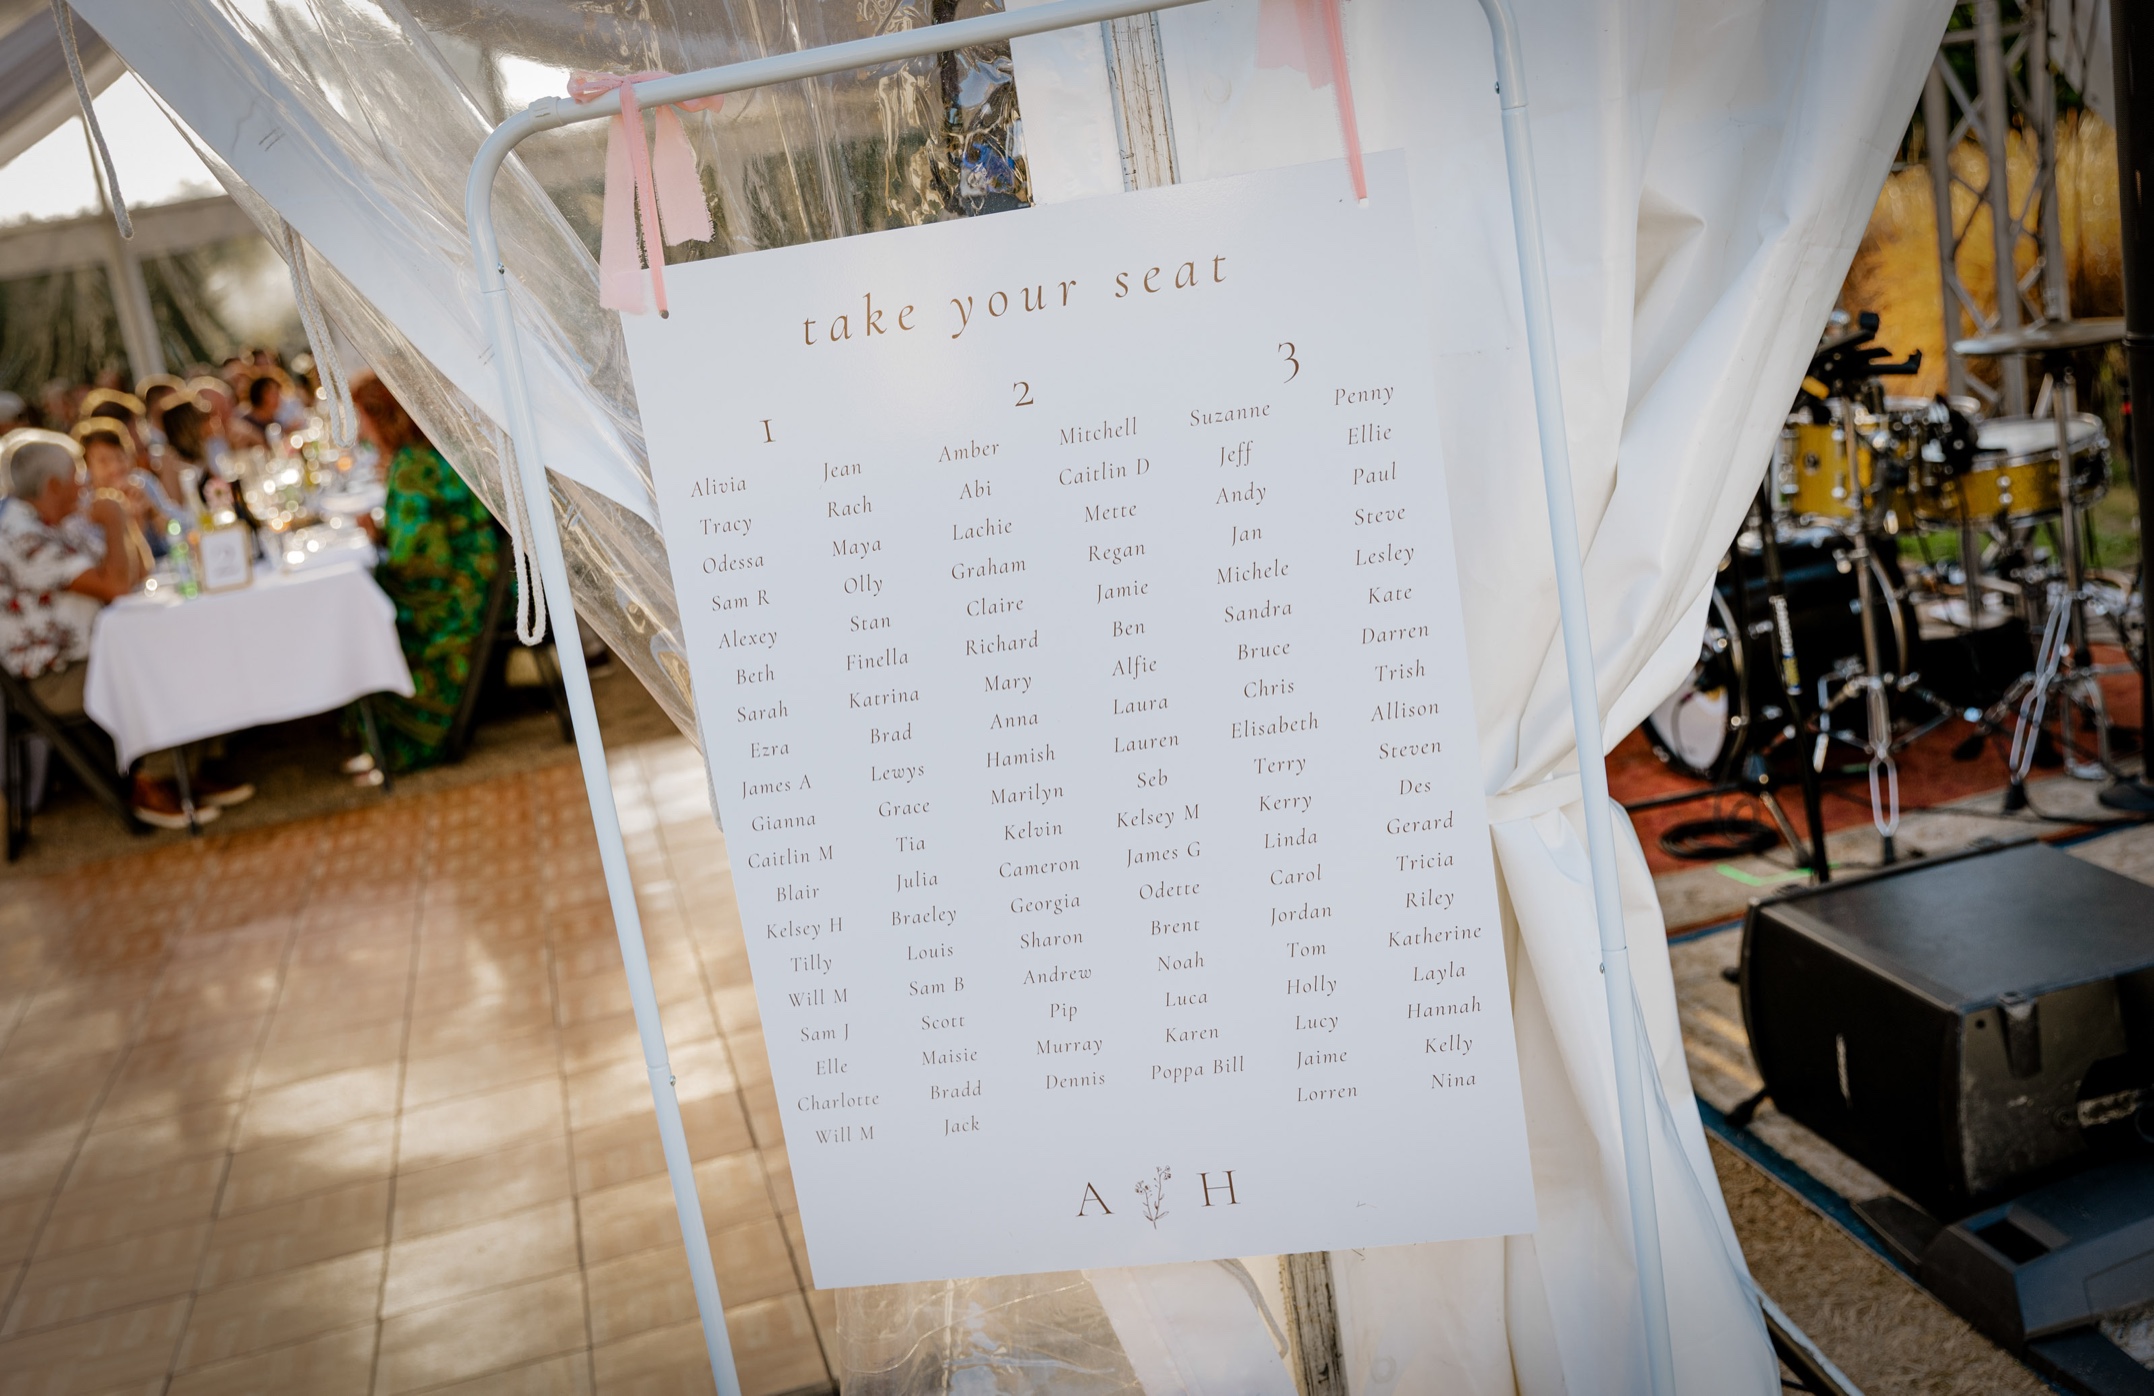 take your seat
1
Alivia
Tracy
Odessa
Sam R
Alexey
Beth
Sarah
Ezra
James A
Gianna
Caitlin M
Blair
Kelsey H
Tilly
Will M
Sam J
Elle
Charlotte
Will M
Jean
Rach
Maya
Olly
Stan
Finella
Katrina
Brad
Lewys
Grace
Tia
Julia
Braeley
Louis
Sam B
Scott
Maisie
Bradd
Jack
2
Amber
Abi
Lachie
Graham
Claire
Richard
Mary
Anna
Hamish
Marilyn
Kelvin
Cameron
Georgia
Sharon
Andrew
Pip
Murray
Dennis
Mitchell
Caitlin D
Mette
Regan
Jamie
Ben
Alfie
Laura
Lauren
Seb
Kelsey M
James G
Odette
Brent
Noah
Luca
Karen
Poppa Bill
3
Suzanne
Jeff
Andy
Jan
Michele
Sandra
Bruce
Chris
Elisabeth
Terry
Kerry
Linda
Carol
Jordan
Tom
Holly
Lucy
Jaime
Lorren
Penny
Ellie
Paul
Steve
Lesley
Kate
Darren
Trish
Allison
Steven
Des
Gerard
Tricia
Riley
Katherine
Layla
Hannah
Kelly
Nina
A H